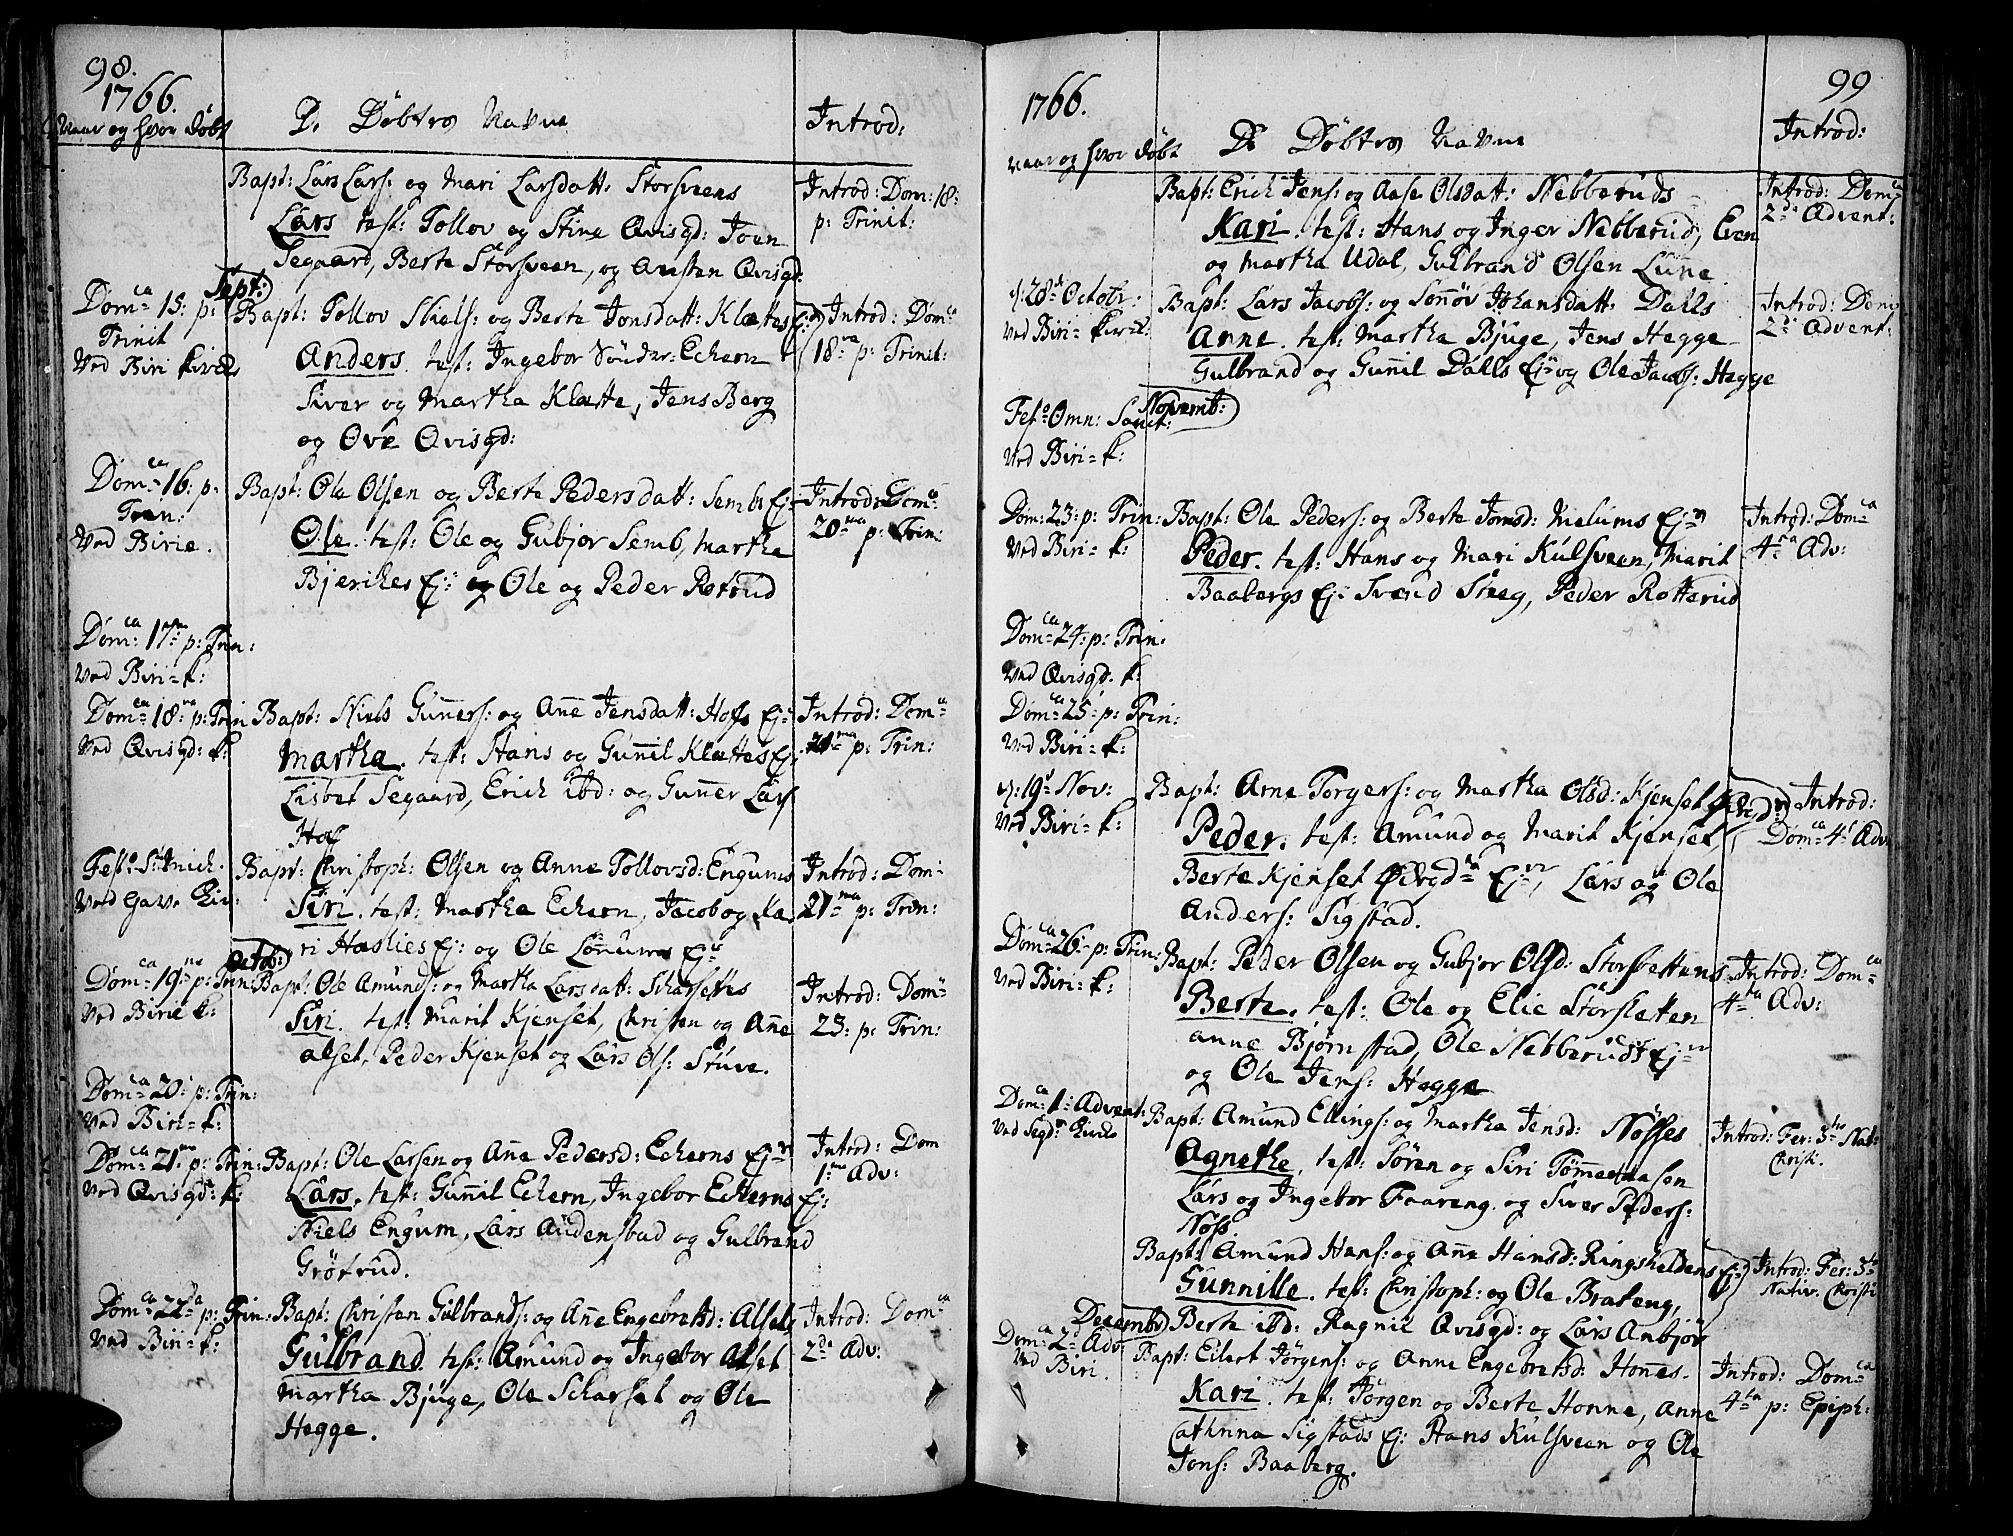 98.
1766.
Naar og hvor døbt
D. Døbtes Navne
Introd:
Bapt: Lars Lars: og Mari Larsdatt: Storsveens
Lars test: Tollov og Stine Qvisgd: Joen
Segaard, Berte Storsveen, og Avsten Qvisgd:
Introd: Dom: 18:
p: Trinit:
Sept:
Domca 15: p:
Trinit
Ved Biri Kircke
Bapt: Tollov Niels: og Berte Jonsdatt: Klættes Ej:
Anders. test: Ingebor Sönder: Echern
Siver og Martha Klætte, Jens Berg
og Ove Qvisgd:
Introd: Domca
18va p: Trinit:
Domca 16: p:
Tren:
Ved Birie.
Bapt: Ole Olsen og Berte Pedersdatt: Sembs Ej:
Ole. test: Ole og Gubjor Semb, Martha
Bjerikes Ej: og Ole og Peder Roterud
Introd: Domca
20ma p: Trin:
Domca 17ma p: Trin:
Ved Biri=k:
Domca 18va p: Trin
Ved Qvisgd: k:
Bapt: Niels Gunners: og Ane Jensdatt: Hofs Ej:
Martha. test: Hans og Gunnil Klættes Ej:
Lisbet Segaard, Erich ibd: og Gunner Lars
Hof
Introd: Domca
21ma p: Trin:
Festo St: Mich.
Ved Gave Kir:
Bapt: Christoph: Olsen og Anne Tollovsd: Engums
Siri. test: Martha Echern, Jacob og Ka-
ri Haslies Ej: og Ole Lönnums Ej:
Introd: Dom:
21ma p: Trin:
Octob:
Domca 19na p: Trin:
Ved Birie k:
Bapt: Ole Amunds: og Martha Larsdatt: Scharsettes
Siri. test: Marit Kjenset, Christen og Ane
Alset, Peder Kjenset og Lars Ols: Stuve.
Introd: Dom:
23: p: Trin:
Domca 20: p: Trin:
Ved Biri=k:
Domca 21ma p: Trin:
Ved Qvisgd: k:
Bapt: Ole Larsen og Ane Pedersd: Echerns Ej:
Lars. test: Gunnil Echern, Ingebor Echerns Ej:
Niels Engum, Lars Audenstad og Gulbrand
Grötrud.
Introd: Dom
1ma Adv:
Domca 22da p: Trin:
Ved Biri=k:
Bapt: Christen Gulbrands: og Ane Engebretsd: Alsets
Gulbrand test: Amund og Ingebor Alset
Martha Bjuge, Ole Scharset og Ole
Hegge.
Introd: Domca
2da Adv:
99
1766.
Naar og hvor døbt
D. Döbtes Navne
Introd:
Bapt: Erich Jens: og Aase Olsdatt: Nebberuds
Kari. test: Hans og Inger Nebberud, Even
og Martha Udal, Gulbrand Olsen Lune
Introd: Domca
2da Advent:
d: 28de Octobr:
Ved Biri=Kircke:
Bapt: Lars Jacobs: og Sönnöv Johansdatt: Dahls
Anne. test: Martha Bjuge, Jens Hegge
Gulbrand og Gunnil Dahls Ej: og Ole Jacobs: Hegge
Introd: Dom
2da Advent:
Novemb:
Festo Omn: Sanct:
Ved Biri=k:
Dom: 23: p: Trin:
Ved Biri=k:
Bapt: Ole Peders: og Berte Jonsd: Melums Ej:
Peder. test: Hans og Mari Kulsveen, Marit
Baabergs Ej: Svend Steeg, Peder Rotterud
Introd: Domca
4ta Adv:
Domca 24: p: Trin:
Ved Qvisgd. k:
Domca 25: p: Trin:
Ved Biri=k:
d: 19d Nov:
Ved Biri=k:
Bapt: Arne Torgers: og Martha Olsd: Kjenset Ødegd:
Peder. test: Amund og Marit Kjenset,
Berte Kjenset Ødegd: Ej:, Lars og Ole
Anders: Sigstad.
Introd:
Domca 4t Adv
Domca 26: p: Trin:
Ved Biri=k:
Bapt: Peder Olsen og Gubjor Olsd: Storslettens
Berte. test: Ole og Elie Storsleten
Anne Bjørnstad, Ole Nebberuds Ej:
og Ole Jens: Hegge
Introd: Domca
4ta Adv:
Domca 1: Advent:
Ved Segd: Kircke
Bapt: Amund Ellings: og Martha Jensd: Nösses
Agnethe, test: Sören og Siri
Lars og Ingebor Faareng og Siver Peders:
Nöss
Introd: Fer: 3tia Nat:
Christi.
Bapt: Amund Hans: og Ane Hansd: Ringsheldens Ej:
Gunnille. test: Christoph: og Ole Brateng,
Berte ibd: Ragnil Qvisgd: og Lars Anbjör
Introd: Fer: 3tia
Nativ. Christi
Decembr
Domca 2d Adv:
Ved Biri.
Bapt: Eilert Jörgens: og Anne Engebretsd: Hones.
Kari. test: Jörgen og Berte Honne, Anne
Cathrina Sigstads Ej: Hans Kulsveen og Ole
Jons: Baaberg.
Introd: Domca
4ta p: Epiph: